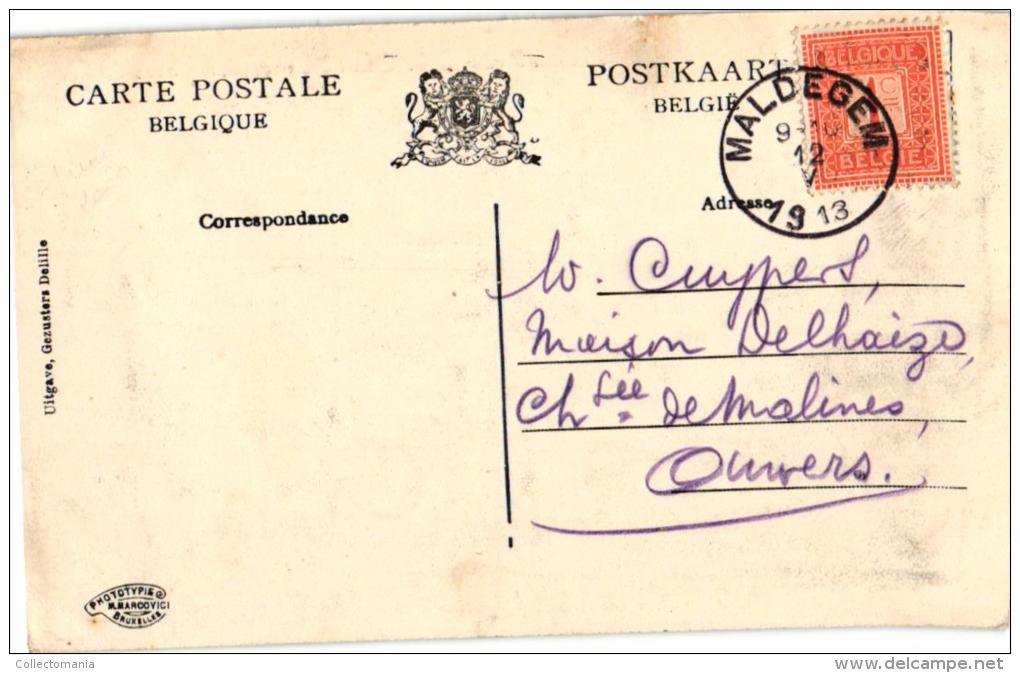 CARTE POSTALE
BELGIQUE
POSTKAART
BELGIË
BELGIQUE
BELGIË
MALDEGEM
12
V
1913
Correspondance
Adresse
Uitgave, Gezusters Delille
W. Cuypers,
Maison Delhaize,
Chsée de Malines,
Anvers.
PHOTOTYPIE
M. MARCOVICI
BRUXELLES
Collectomania
delcampe.net